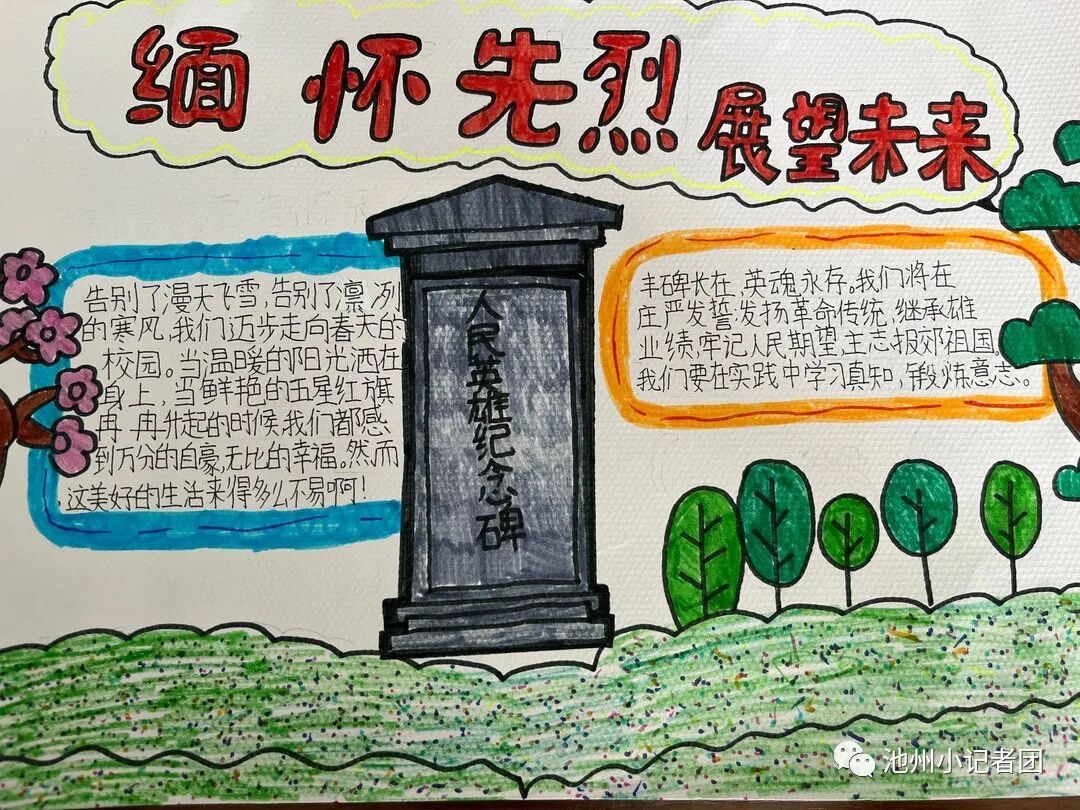 缅怀先烈 展望未来
告别了漫天飞雪,告别了凛冽
的寒风,我们迈步走向春天的
校园。当温暖的阳光洒在
身上,当鲜艳的五星红旗
冉冉升起的时候,我们都感
到万分的自豪,无比的幸福。然而
这美好的生活来得多么不易啊!
人民英雄纪念碑
丰碑长在,英魂永存。我们将在
庄严发誓:发扬革命传统,继承雄
业绩,牢记人民期望,立志报效祖国。
我们要在实践中学习真知,锻炼意志。
池州小记者团